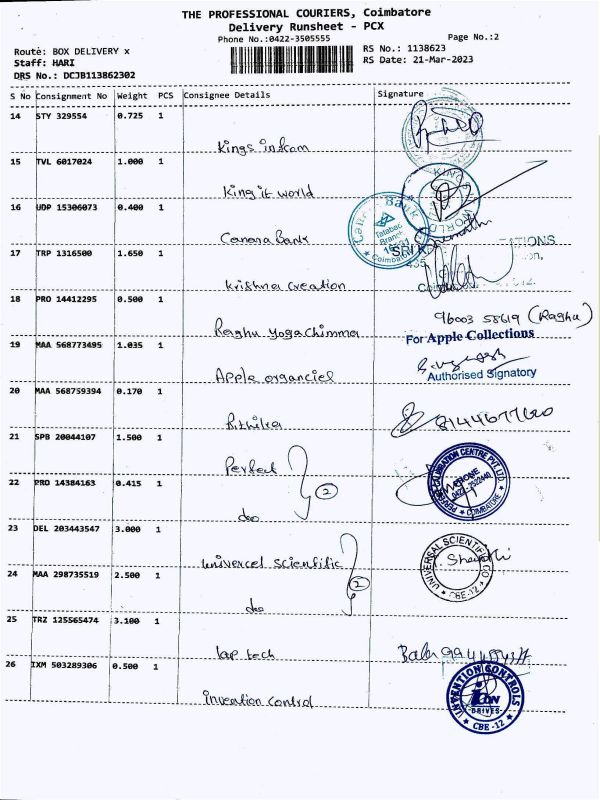 THE PROFESSIONAL COURIERS, Coimbatore
Delivery Runsheet - PCX
Phone No.:0422-3505555
Page No.:2
Route: BOX DELIVERY x
RS No.: 1138623
Staff: HARI
RS Date: 21-Mar-2023
DRS No.: DCJB113862302
S No Consignment No Weight PCS Consignee Details Signature
14 STY 329554 0.725 1
Kings infcom
15 TVL 6017024 1.000 1
King it world
16 UDP 15306073 0.400 1
Canara Bank
Tatabad
Branch
17 TRP 1316500 1.650 1
SRI K
Krishna creation
18 PRO 14412295 0.500 1
96003 58619 (Raghu)
Raghu yoga chimma
19 MAA 568773495 1.035 1
For Apple Collections
Apple organciel
Authorised Signatory
20 MAA 568759394 0.170 1
Rithika
8144677620
21 SPB 20044107 1.500 1
Perfect
22 PRO 14384163 0.415 1
2
PERFECT CALIBRATION CENTRE PVT. LTD.
PHONE
COIMBATORE
do
23 DEL 203443547 3.000 1
univercel scientific
UNIVERSAL SCIENTIFIC CO
CBE-12
24 MAA 298735519 2.500 1
2
do
25 TRZ 125565474 3.100 1
lap tech
Babu
26 IXM 503289306 0.500 1
invention control
INVENTION CONTROLS
icon
DRIVES
CBE-12